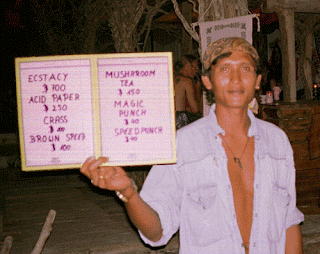 ECSTACY
$ 700
ACID PAPER
$ 250
CRASS
BROWN SPEED
$ 100
MUSHRROOM
TEA
$ 150
MAGIC
PUNCH
SPEED PUNCH